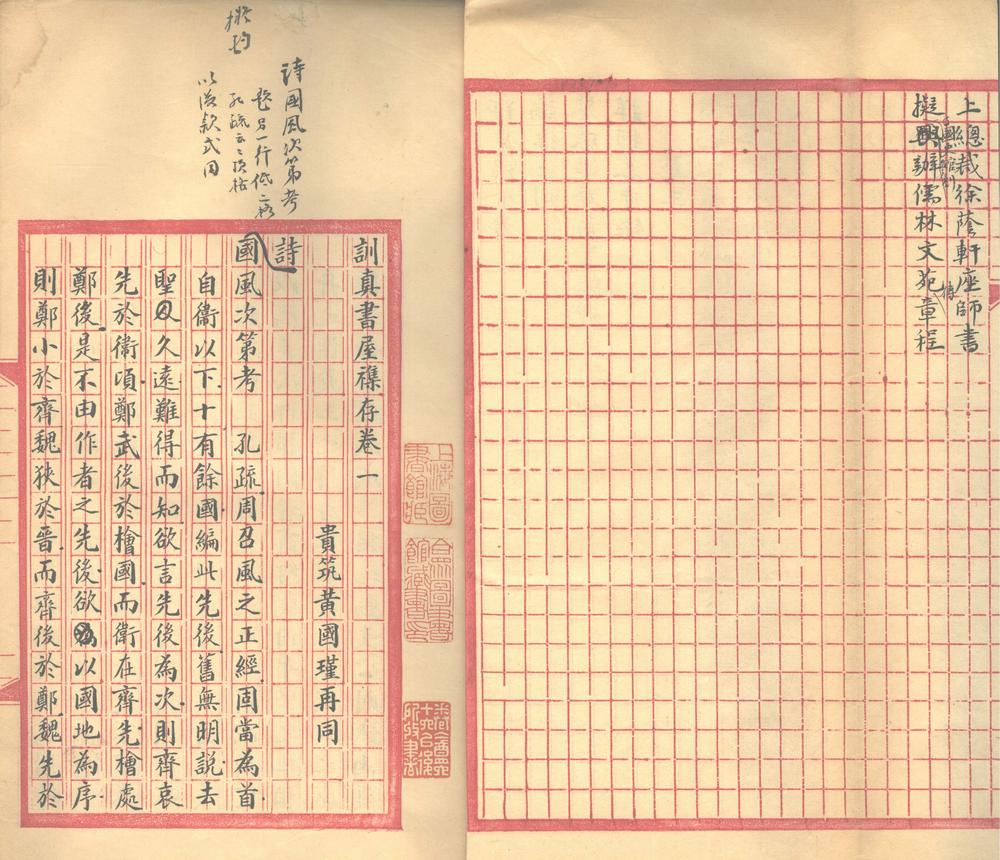 上總裁徐蔭軒座師書
擬興辦儒林文苑章程
訓真書屋襍存卷一
貴筑黃國瑾再同
詩
國風次第考 孔疏周召風之正經固當為首
自衞以下十有餘國編此先後舊無明說去
聖久遠難得而知欲言先後為次則齊哀
先於衛頃鄭武後於檜國而衛在齊先檜處
鄭後是不由作者之先後欲以國地為序
則鄭小於齊魏狹於晉而齊後於鄭魏先於
詩國風次第考
題另一行低二格
孔疏云云頂格
以後款式同
上海圖書館藏